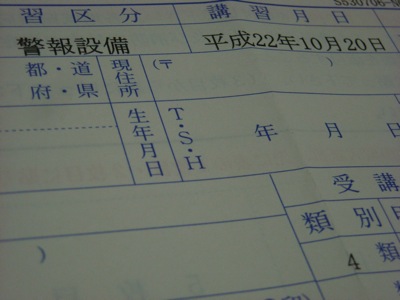 習区分 講習月日
警報設備 平成22年10月20日
都・道 現住所 (〒 )
府・県
生年月日 T・S・H 年 月 日
受講
類別
4 類
)